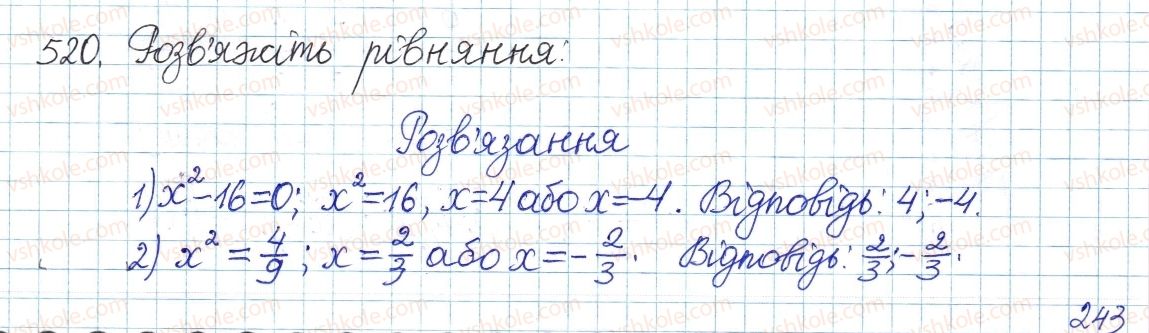 520. Розв'яжіть рівняння:
Розв'язання
1) x²-16=0; x²=16, x=4 або x=-4. Відповідь: 4; -4.
2) x² = 4/9; x = 2/3 або x = -2/3. Відповідь: 2/3; -2/3.
243